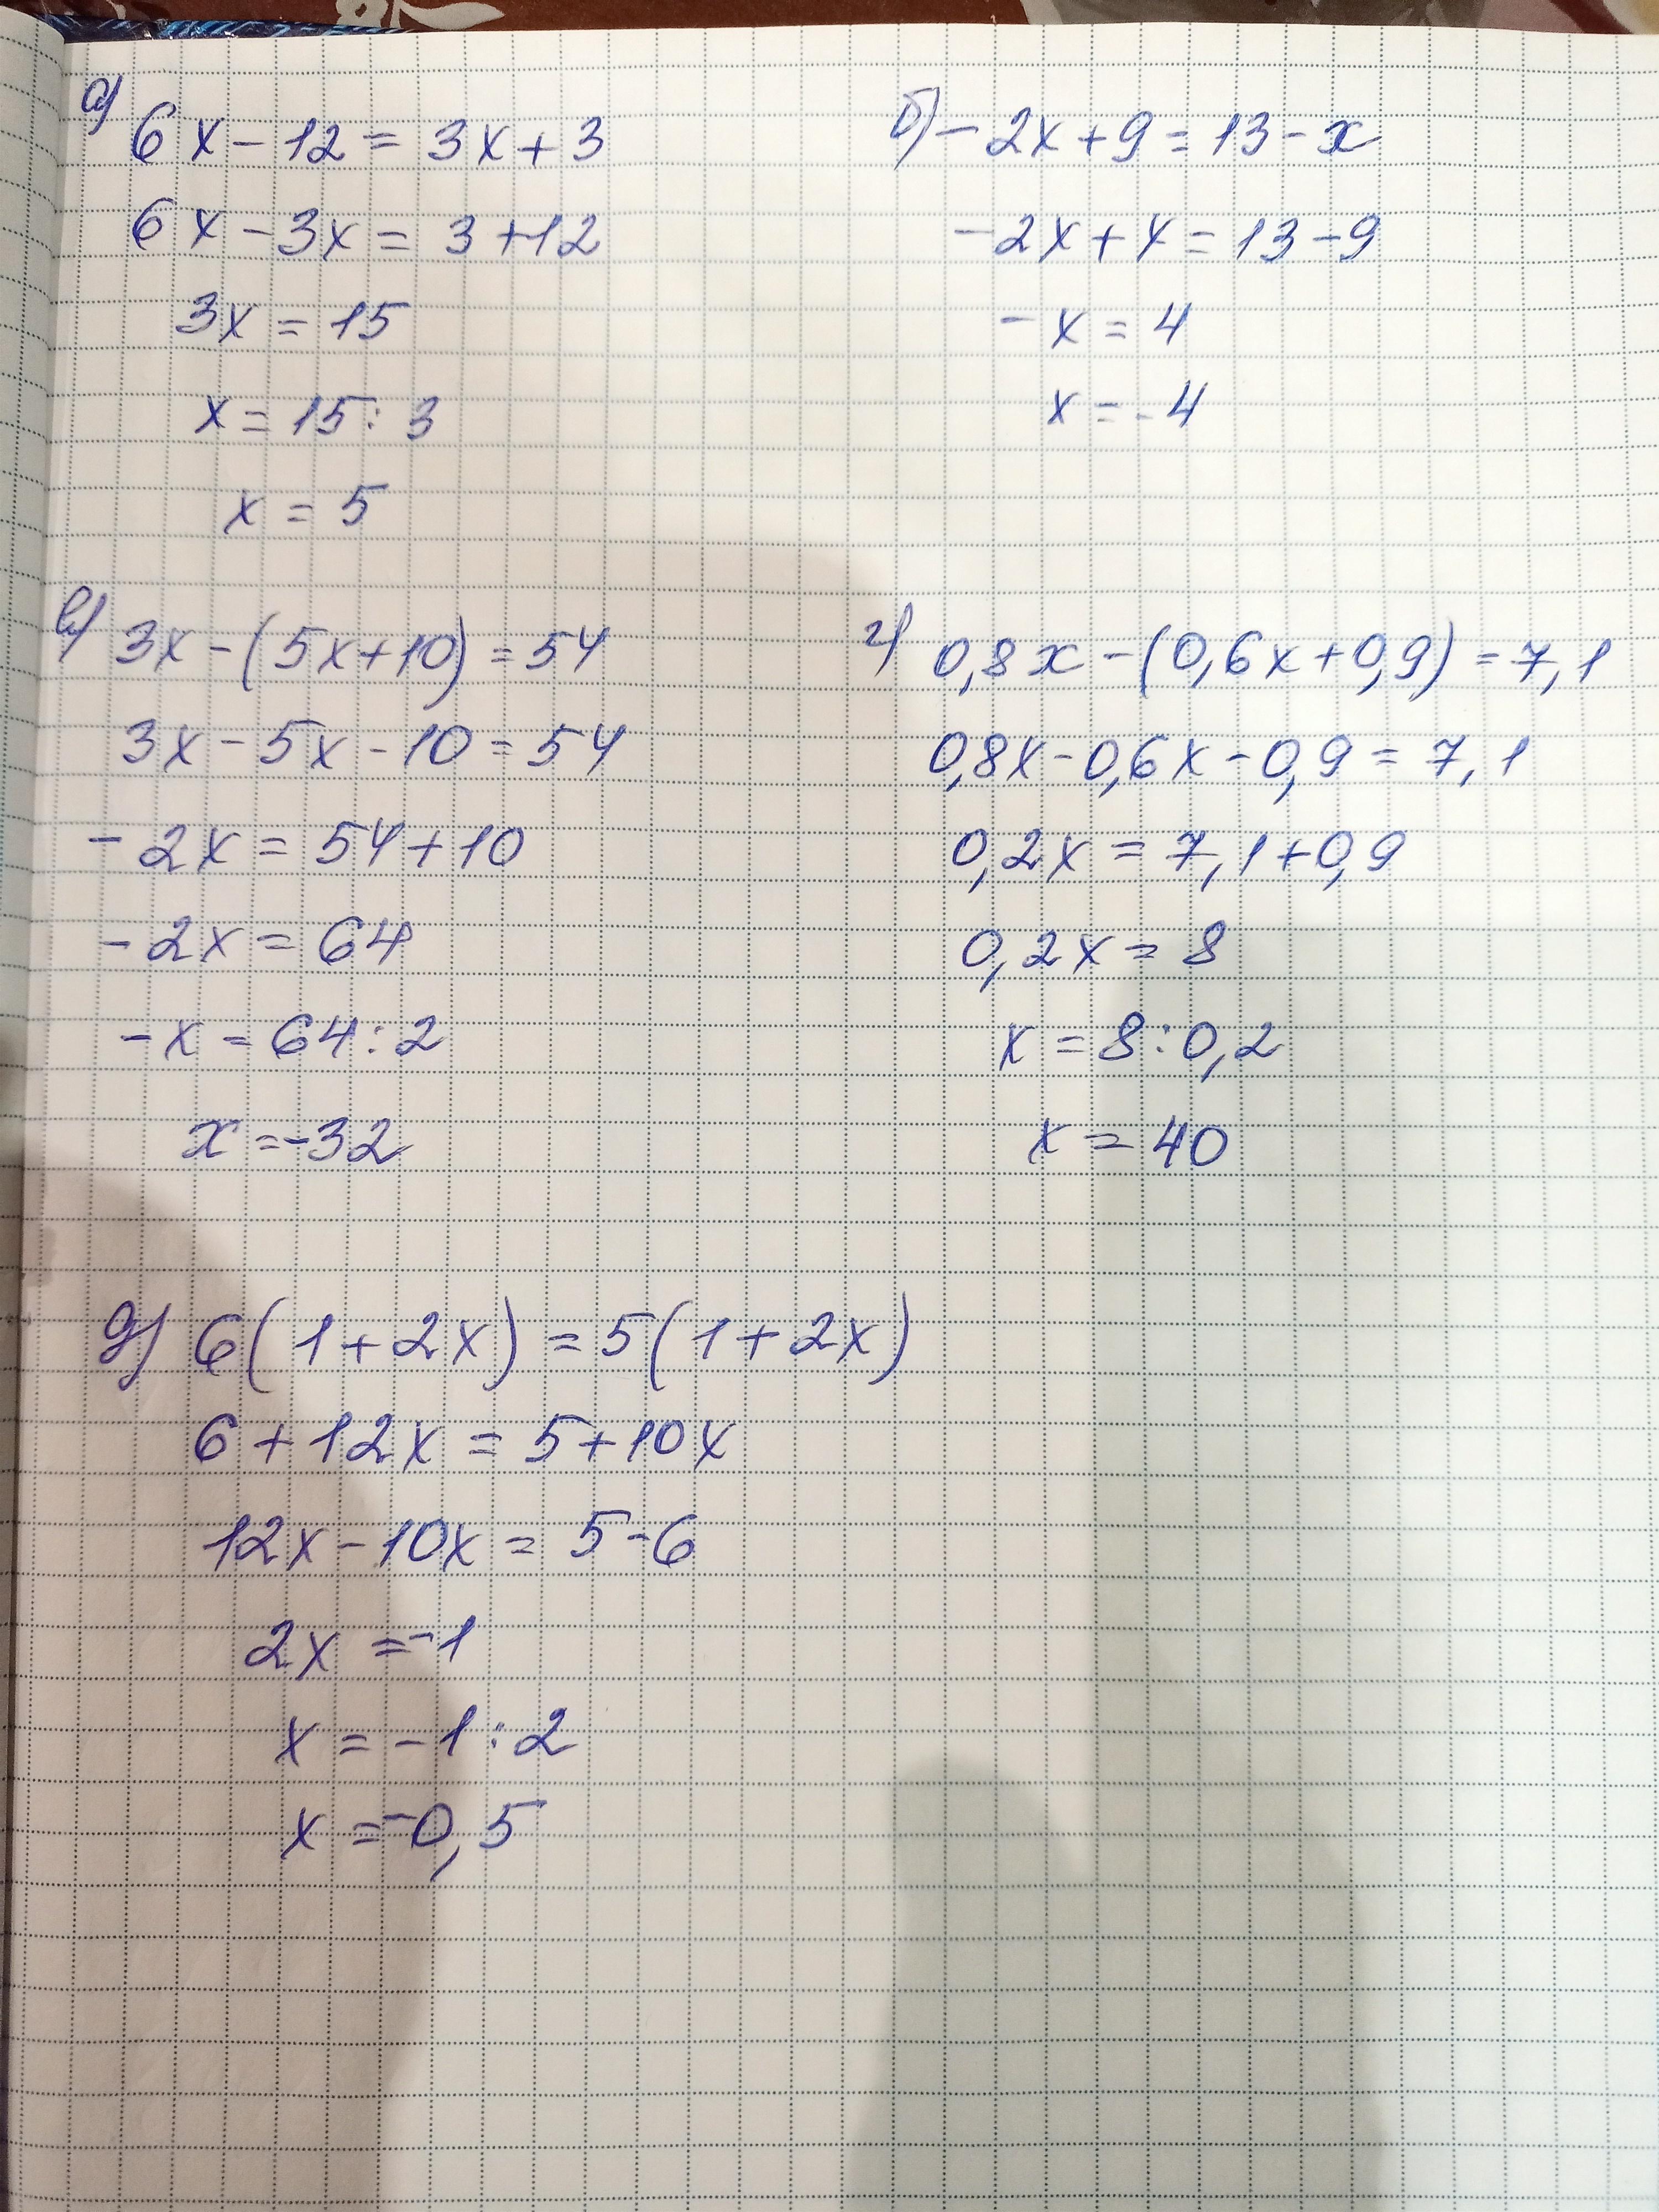 а) 6x - 12 = 3x + 3
6x - 3x = 3 + 12
3x = 15
x = 15 : 3
x = 5
б) - 2x + 9 = 13 - x
- 2x + x = 13 - 9
- x = 4
x = - 4
в) 3x - (5x + 10) = 54
3x - 5x - 10 = 54
- 2x = 54 + 10
- 2x = 64
- x = 64 : 2
x = -32
г) 0,8x - (0,6x + 0,9) = 7,1
0,8x - 0,6x - 0,9 = 7,1
0,2x = 7,1 + 0,9
0,2x = 8
x = 8 : 0,2
x = 40
д) 6(1 + 2x) = 5(1 + 2x)
6 + 12x = 5 + 10x
12x - 10x = 5 - 6
2x = -1
x = -1 : 2
x = -0,5